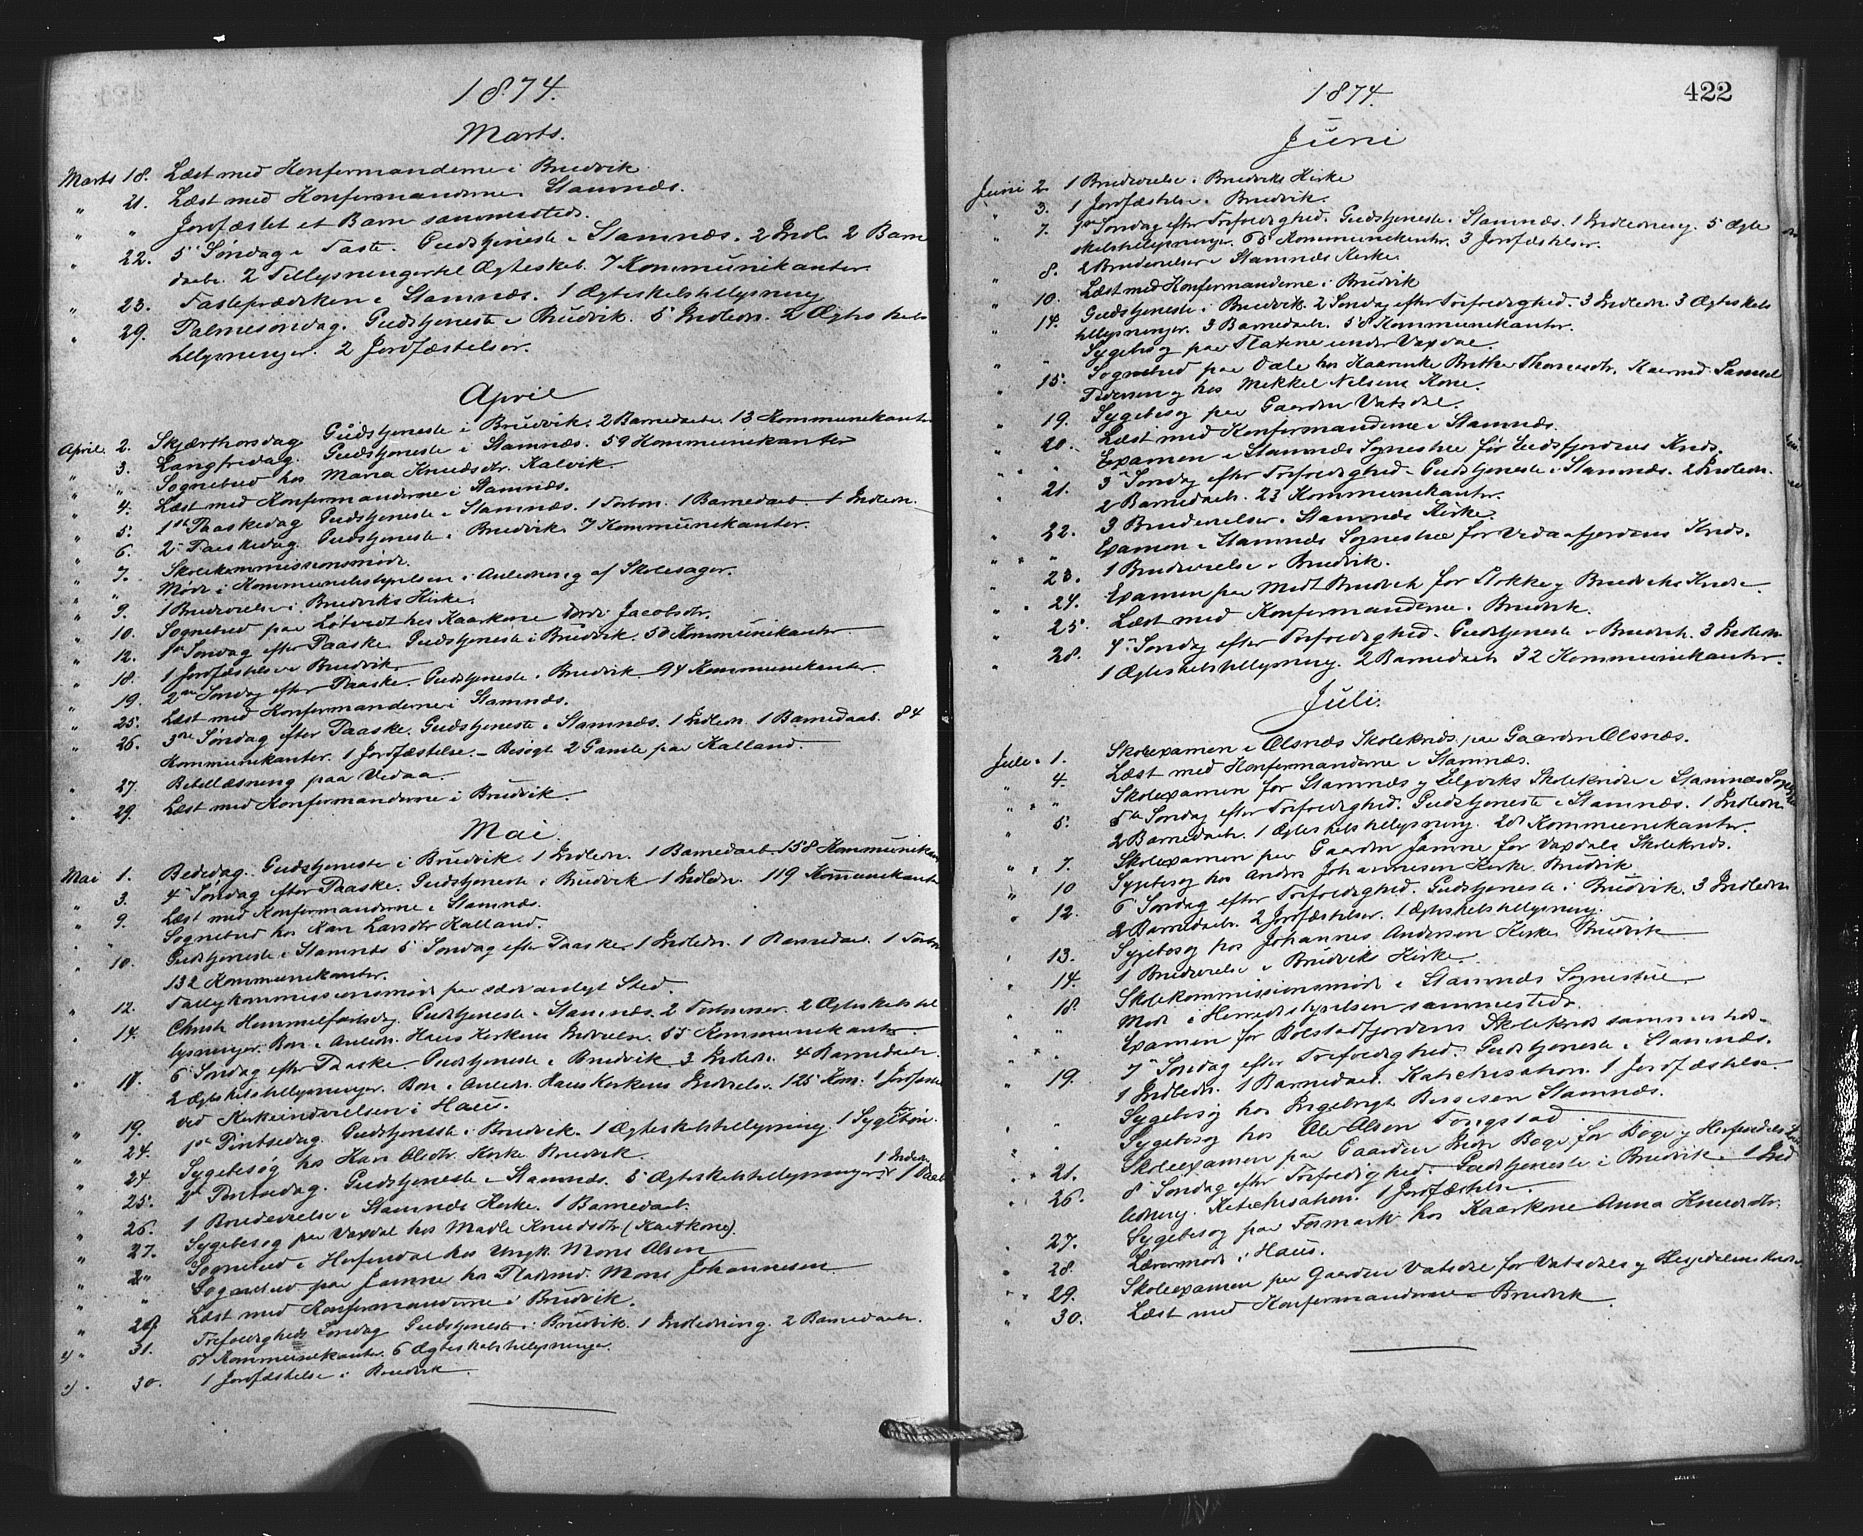 1874.
Marts.
Marts 18. Læst med Konfermanderne i Bruvik
" 21. Læst med Konfermanderne. Stamnæs.
" " Jordfæstet et Barn sammesteds.
" 22. 5te Søndag i Faste. Gudstjeneste i Stamnæs. 2 Indl. 2 Barne
daab. 2 Tillysninger til Ægteskab. 7 Kommunikanter.
" 23. Fasteprædiken i Stamnæs. 1 Ægteskabstillysning
" 29. Palmesøndag. Gudstjeneste i Bruvik. 5 Indledn. 2 Ægteskabs
tillysninger. 2 Jordfæstelser.
April
April 2. Skjærthorsdag Gudstjeneste i Bruvik. 2 Barnedaab. 13 Kommunikanter
" 3. Langfredag. Gudstjeneste i Stamnæs. 59 Kommunikanter
" " Sognebud hos Maria Knudsdtr. Kalvik.
" 4. Læst med Konfermanderne i Stamnæs.
" 5. 1ste Paaskedag Gudstjeneste i Stamnæs. 1 Forbøn. 1 Barnedaab 1 Indledn.
" 6. 2. Paaskedag. Gudstjeneste i Bruvik 7 Kommunikanter.
" 7. Skolekommissionsmøde.
" " Møde i Kommunebestyrelsen i Anledning af Skolesager.
" 9. 1 Brudevielse i Bruviks Kirke.
" 10. Sognebud paa hos Kaarkone Jacobsdtr.
" 12. 1ste Søndag efter Paaske Gudstjeneste i Bruvik. 50 Kommunikanter.
" 18. 1 Jordfæstelse i Bruvik.
" 19. 2den Søndag efter Paaske. Gudstjeneste i Bruvik 94 Kommunikanter
" 25. Læst med Konfermanderne i Stamnæs.
" 26. 3die Søndag efter Paaske. Gudstjeneste i Stamnæs. 1 Indledn. 1 Barnedaab. 84
Kommunikanter. 1 Jordfæstelse. – Besøgt 2 Gamle paa Kalland.
" 27. Bibellæsning paa Vedaa.
" 29. Læst med Konfermanderne i Bruvik.
Mai
Mai 1. Bededag. Gudstjeneste i Bruvik. 1 Indledn. 1 Barnedaab 158 Kommunikan
" 3. 4. Søndag efter Paaske. Gudstjeneste i Bruvik 1 Indledn. 119 Kommunikanter
" 9. Læst med Konfermanderne i Stamnæs.
Sognebud hos Kari Larsdtr Kalland.
" 10. Gudstjeneste i Stamnæs 5 Søndag efter Paaske 1 Indledn. 1 Barnedaab. 1 Forbøn
132 Kommunikanter.
" 12. Møde paa Sted.
" 14. Christi Himmelfartsdag. Gudstjeneste i Stamnæs. 2 Forbønner. 2 Ægteskabstil
lysninger. Bøn i Anledn. Haus Kirkens Indvielse. 55 Kommunikanter.
" 17. 6 Søndag efter Paaske. Gudstjeneste i Bruvik 3 Indledn. 4 Barnedaab.
2 Ægteskabstillysninger. Bøn i Anledn. Haus Kirkens Indvielse. 125 Kom. 1 Jordfæstelse
" 19. ved Kirkeindvielsen i Haus.
" 24. 1ste Pintsedag. Gudstjeneste i Bruvik. 1 Ægteskabstillysning. 1 Sygebøn.
" 24 Sygebesøg hos Hans Olsdtr. Kirke Bruvik.
" 25. 2den Pintsedag. Gudstjeneste i Stamnæs. 5 Ægteskabstillysninger 1 Indledn. 1 Daab
" 26. 1 Brudevielse i Stamnæs Kirke. 1 Barnedaab.
" 27. Sygebesøg paa Vaxdal hos Madle Knudsdtr (Kaarkone).
" " Sognebud i Herfindal hos Ungk. Mons Olsen
" " Sognebud paa Jamne hos Pladsmd. Mons Johannesen
" 29. Læst med Konfermanderne i Bruvik.
" 31. Trefoldigheds Søndag Gudstjeneste i Bruvik. 1 Indledning. 2 Barnedaab.
67 Kommunikanter. 6 Ægteskabstillysninger.
" 30. 1 Jordfæstelse i Bruvik.
1874.
422
Juni
Juni 2. 1 Brudevielse i Bruviks Kirke
" 3. 1 Jordfæstelse i Bruvik.
" 7. 1ste Søndag efter Trefoldighed. Gudstjeneste i Stamnæs. 1 Indledning. 5 Ægte
skabstillysninger. 65 Kommunikanter. 3 Jordfæstelser.
" 8. 2 Brudevielser i Stamnæs Kirke.
" 10. Læst med Konfermanderne i Bruvik
" 14. Gudstjeneste i Bruvik. 2 Søndag efter Trefoldighed. 3 Indledn. 3 Ægteskabs
tillysninger. 3 Barnedaab. 58 Kommunikanter.
" Sygebesøg paa Flatene under Vaxdal.
" 15. Sognebud paa Dale hos Kaarenke Brithe Thomasdtr. Kaarmd. Samuel
Pedersen og hos Mikkel Nilsens Kone.
" 19. Sygebesøg paa Gaarden Vatsdal.
" 20. Læst med Konfermanderne i Stamnæs.
" " Examen i Stamnæs Sognestue for Eidsfjordens Krds.
" 21. 3. Søndag efter Trefoldighed. Gudstjeneste i Stamnæs. 2 Indledn.
2 Barnedaab. 23 Kommunikanter.
" 22. 3 Brudevielser i Stamnæs Kirke.
" " Examen i Stamnæs Sognestue for Vedaafjordens Krds.
" 23. 1 Brudevielse i Bruvik.
" 24. Examen paa Midt Bruvik for Stokke og Bruviks Krdse
" 25. Læst med Konfermanderne i Bruvik.
" 28. 4. Søndag efter Trefoldighed. Gudstjeneste i Bruvik. 3 Indledn
1 Ægteskabstillysning. 2 Barnedaab 32 Kommunikanter.
Juli.
Juli 1. Skoleexamen i Olsnæs Skolekrds. paa Gaarden Olsnæs.
" 4. Læst med Konfermanderne i Stamnæs.
" " Skoleexamen for Stamnæs og Skolekredse i Stamnæs
" 5. 5te Søndag efter Trefoldighed. Gudstjeneste i Stamnæs. 1 Indledn
2 Barnedaab. 1 Ægteskabstillysning. 28 Kommunikanter.
" 7. Skoleexamen paa Gaarden Jamne for Vaxdals Skolekrds.
" 10 Sygebesøg hos Anders Johannesen Kirke Bruvik
" 12. 6 Søndag efter Trefoldighed. Gudstjeneste i Bruvik. 3 Indledn
2 Barnedaab. 2 Jordfæstelser. 1 Ægteskabstillysning.
" 13. Sygebesøg hos Johannes Andersen Kirke Bruvik
" 14. 1 Brudevielse i Bruviks Kirke.
" 18. Skolekommissionsmøde i Stamnæs Sognestue.
" Møde i Herredsstyrelsen sammesteds.
" Examen for Bolstadfjordens Skolekrds sammesteds.
" 19. 7 Søndag efter Trefoldighed. Gudstjeneste i Stamnæs.
1 Indledn. 1 Barnedaab. Katekisation. 1 Jordfæstelse.
" Sygebesøg hos Ingebrigt Stamnæs.
" Sygebesøg hos Ole Olsen
" 21. Skoleexamen paa Gaarden Indre Boge for Boge og Herfindals
" 26. 8 Søndag efter Trefoldighed. Gudstjeneste i Bruvik. 1 Ind
ledning. Katekisation. 1 Jordfæstelse.
" 27. Sygebesøg paa hos Kaarkone Anna Knudsdtr.
" 28. Lærermøde i Haus.
" 29. Skoleexamen paa Gaarden Vatsdal for Vatsdals og Hesjedalens Krdse.
" 30. Læst med Konfermanderne i Bruvik.